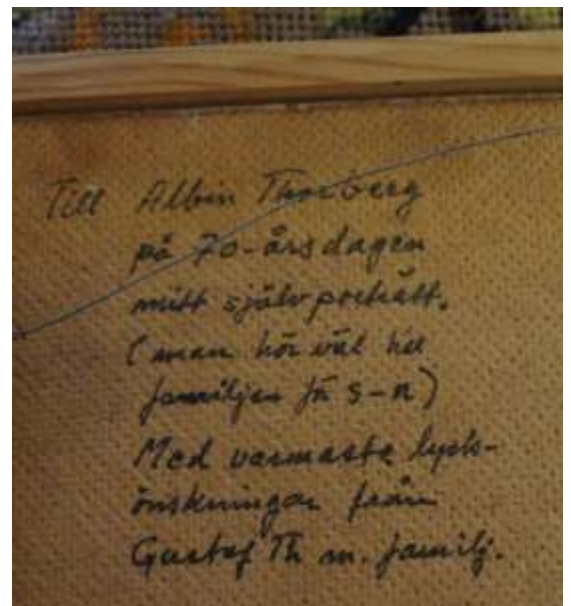 Till Albin Thorberg
på 70-årsdagen
mitt självporträtt.
(man hör väl till
familjen på s-n)
Med varmaste lyck-
önskningar från
Gustaf Th m. familj.